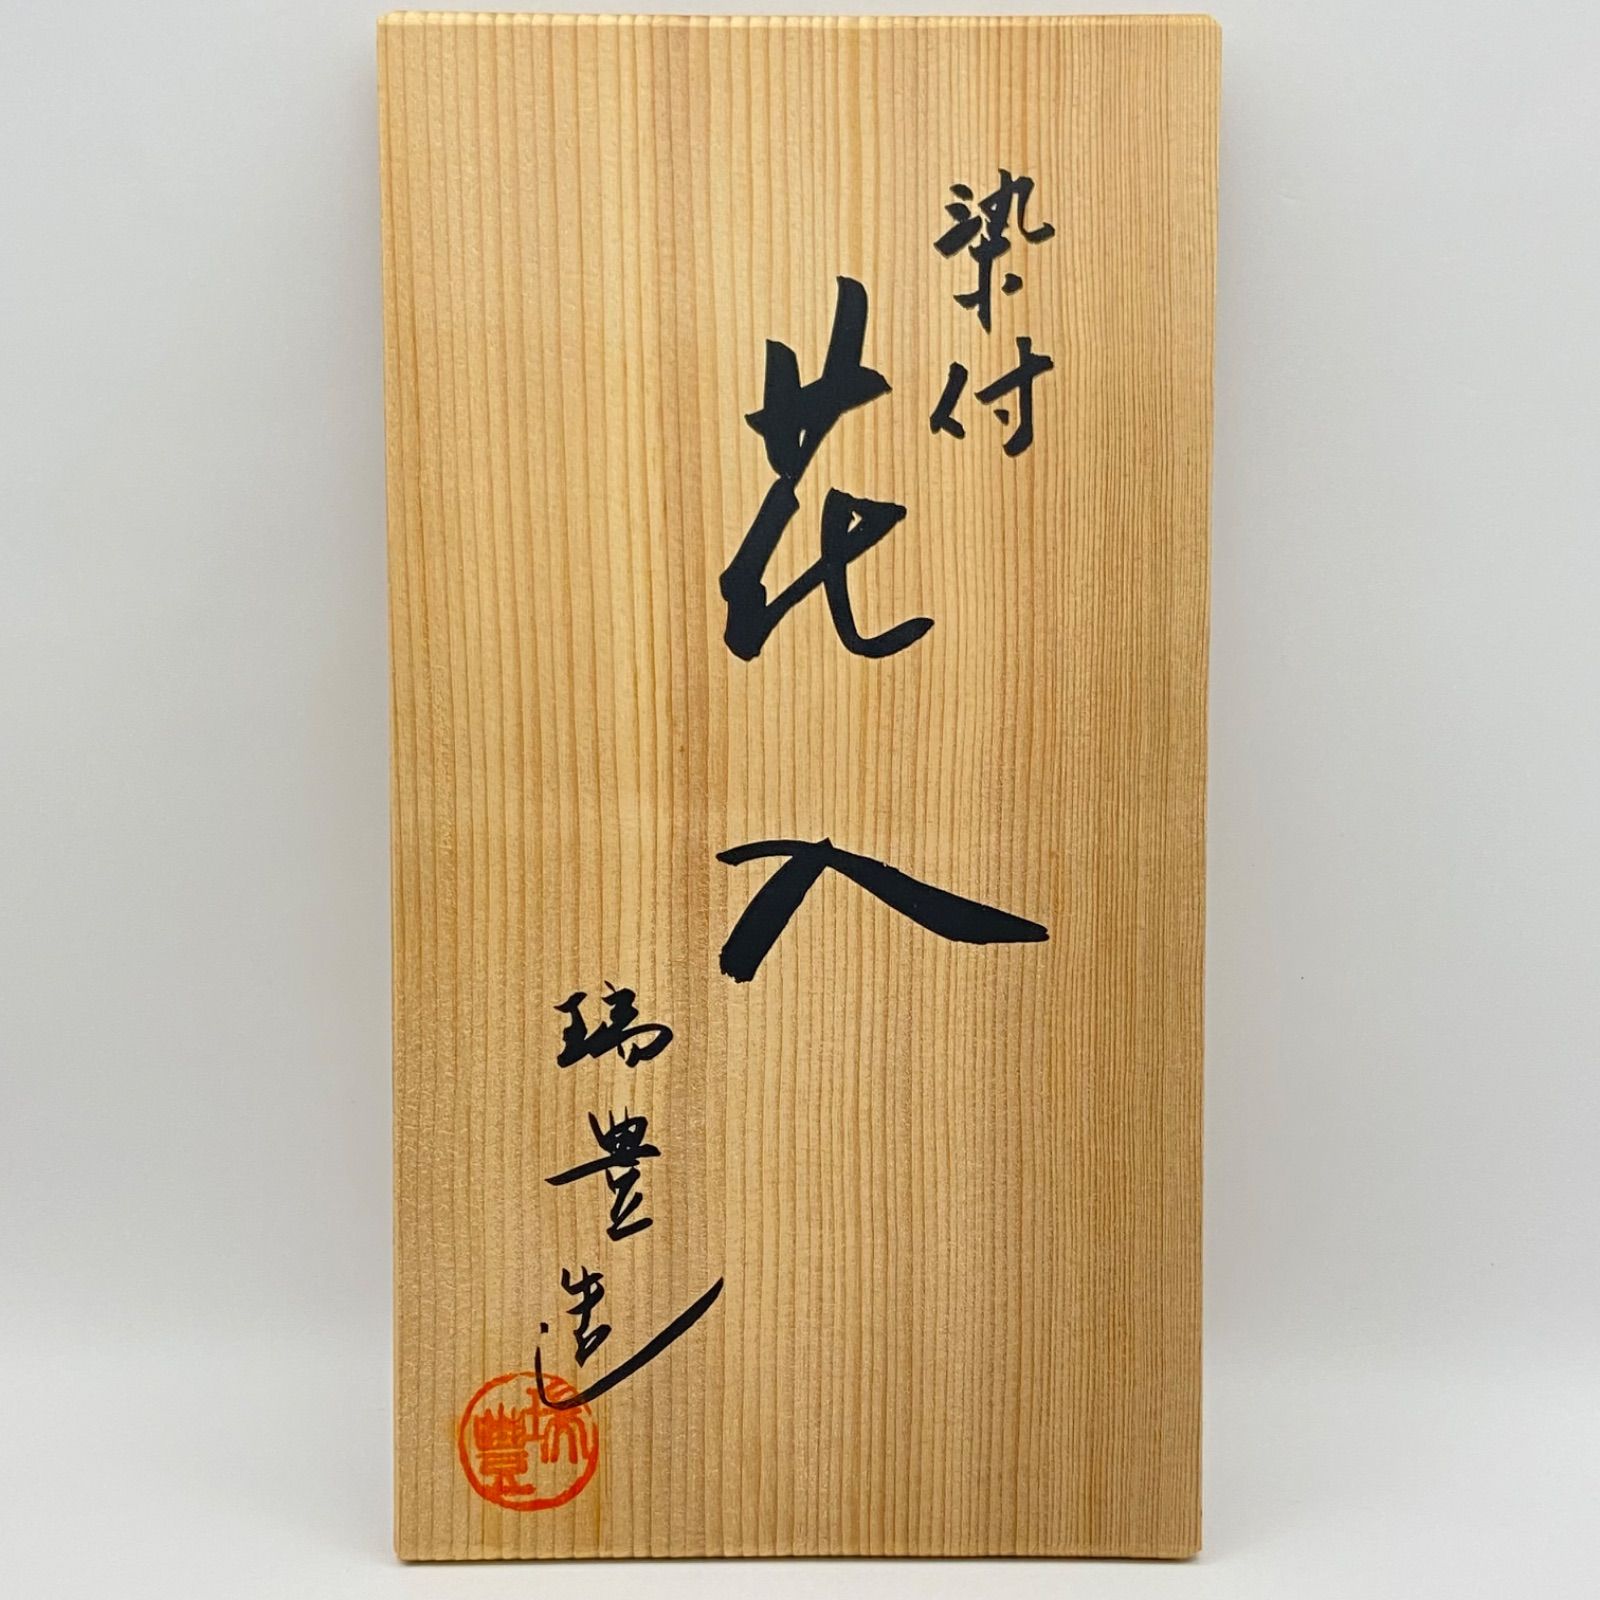 染付
花入
瑞豊造
瑞豐